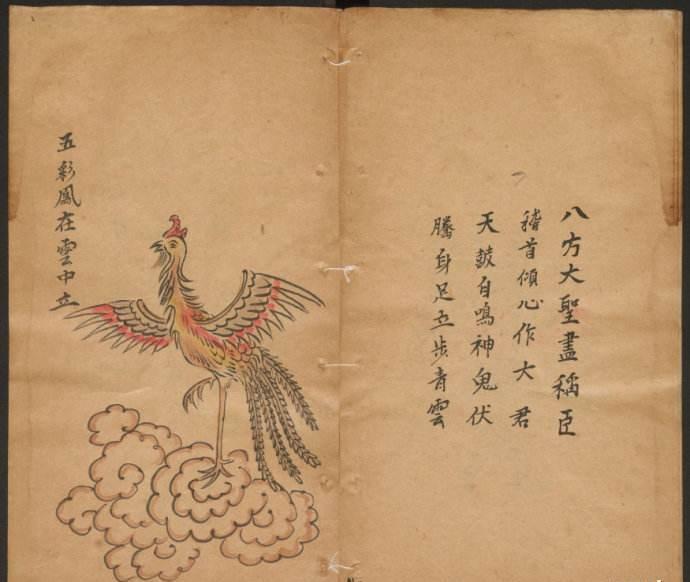 八方大聖盡稱臣
稽首傾心作大君
天鼓自鳴神鬼伏
騰身足五步青雲
五彩鳳在雲中立